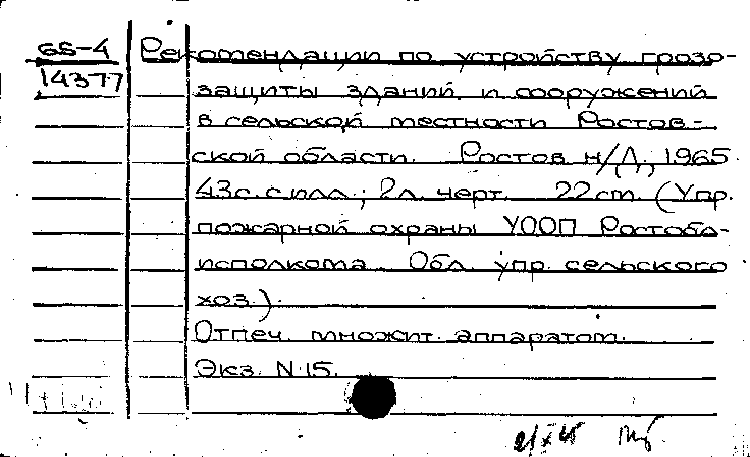 66-4 Рекомендации по устройству грозо-
14377 защиты зданий и сооружений
в сельской местности Ростов-
ской области. Ростов н/Д, 1965.
43с. с илл.; 2л. черт. 22 cm. (Упр.
пожарной охраны УООП Ростобл-
исполкома. Обл. упр. сельского
хоз.).
Отпеч. множит. аппаратом.
Экз. N 15.